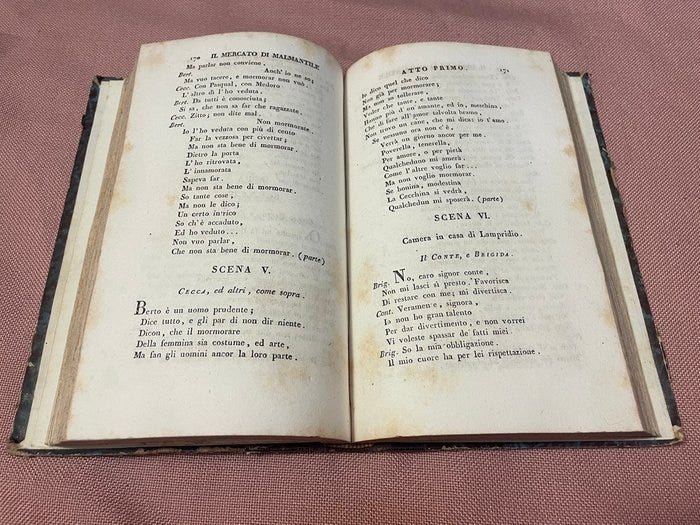 170 IL MERCATO DI MALMANTILE
Ma parlar non conviene.
Bert. Anch' io ne so;
Ma vuo tacere, e mormorar non vuò.
Cecc. Con Pasqual, con Medoro
L' altro dì l' ho veduta.
Bert. Da tutti è conosciuta;
Si sa, che non sa far che ragazzate.
Cecc. Zitto; non dite mal.
Bert. Non mormorate.
Io l' ho veduta con più di cento
Far la vezzosa per civettar;
Ma non sta bene di mormorar.
Dietro la porta
L' ho ritrovata,
L' innamorata
Sapeva far.
Ma non sta bene di mormorar.
So tante cose,
Ma non le dico;
Un certo in'rico
So ch' è accaduto,
Ed ho veduto...
Non vuo parlar,
Che non sta bene di mormorar. (parte)
SCENA V.
CECCA, ed altri, come sopra.
Berto è un uomo prudente;
Dice tutto, e gli par di non dir niente.
Dicon, che il mormorare
Della femmina sia costume, ed arte,
Ma fan gli uomini ancor la loro parte.
ATTO PRIMO. 171
Io dico quel che dico
Non già per mormorare;
Ma non so tollerare,
Veder che tante, e tante
Hanno più d' un amante, ed io, meschina,
Che di fare all' amor talvolta bramo,
Non trovo un cane, che mi dica: io t'amo.
Se nessuno ora non c'è,
Verrà un giorno ancor per me.
Poverella, tenerella,
Per amore, o per pietà
Qualcheduno mi amerà.
Come l' altre voglio far...
Ma non voglio mormorar.
Se bonina, modestina
La Cecchina si vedrà,
Qualchedun mi sposerà. (parte)
SCENA VI.
Camera in casa di Lampridio.
Il CONTE, e BRIGIDA.
Brig. No, caro signor conte,
Non mi lasci sì presto. Favorisca
Di restare con me; mi divertisca.
Cont. Veramen'e, signora,
Io non ho gran talento
Per dar divertimento, e non vorrei
Vi voleste spassar de' fatti miei.
Brig. So la mia obbligazione.
Il mio cuore ha per lei rispettazione.